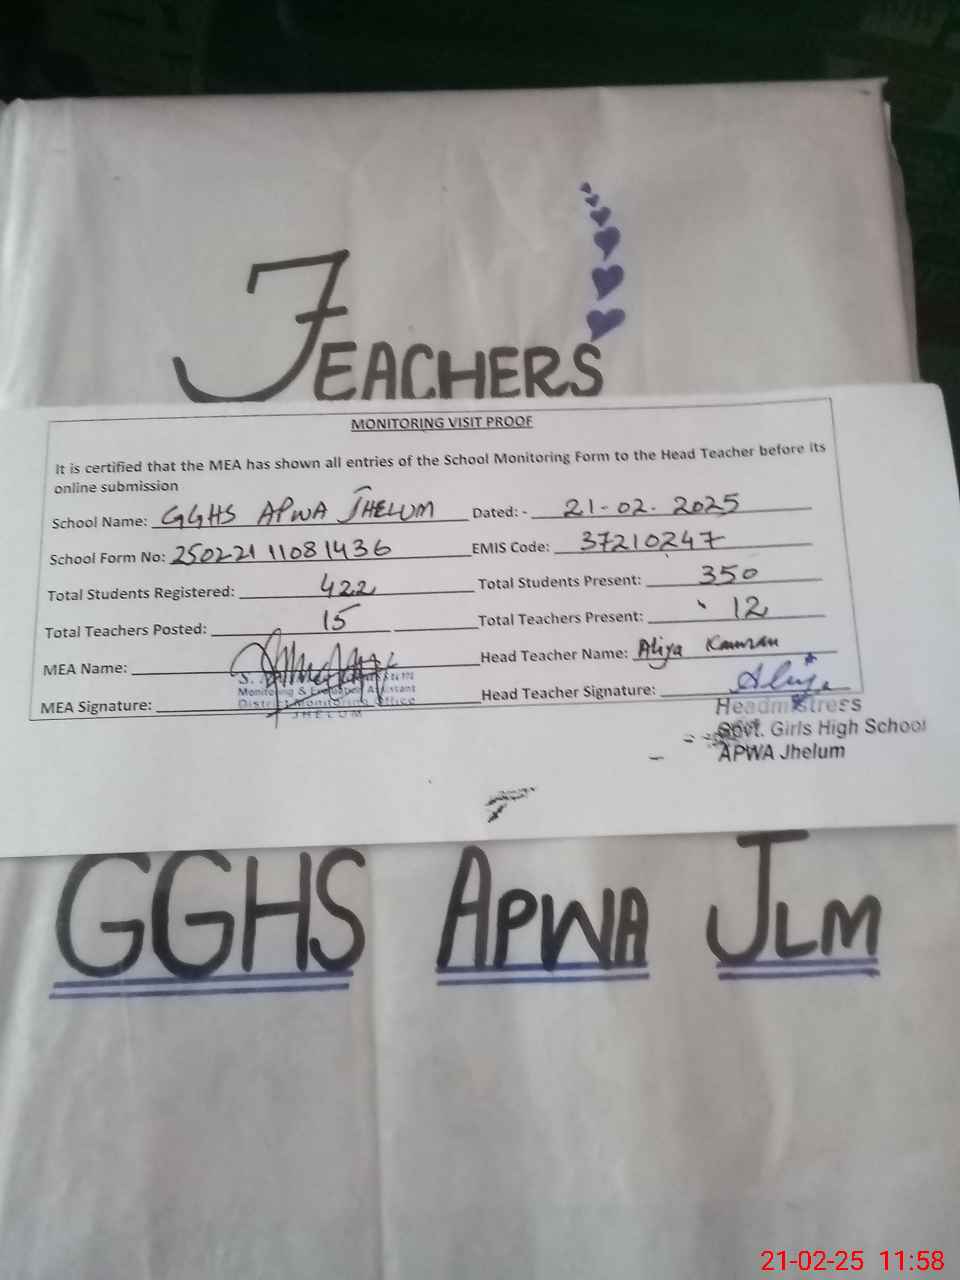 TEACHERS
MONITORING VISIT PROOF
It is certified that the MEA has shown all entries of the School Monitoring Form to the Head Teacher before its
online submission
School Name: GGHS APWA JHELUM Dated: - 21-02-2025
School Form No: 250221 11081436 EMIS Code: 37210247
Total Students Registered: 422 Total Students Present: 350
Total Teachers Posted: 15 Total Teachers Present: 12
MEA Name: Head Teacher Name: Aliya Kamran
Monitoring & Evaluation Assistant
MEA Signature: Head Teacher Signature: Aliya
District Monitoring Office
JHELUM
Headmistress
Govt. Girls High School
APWA Jhelum
GGHS APWA JLM
21-02-25 11:58